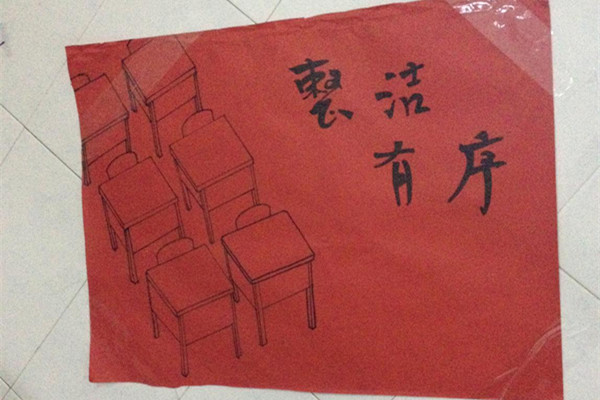 整洁
有序